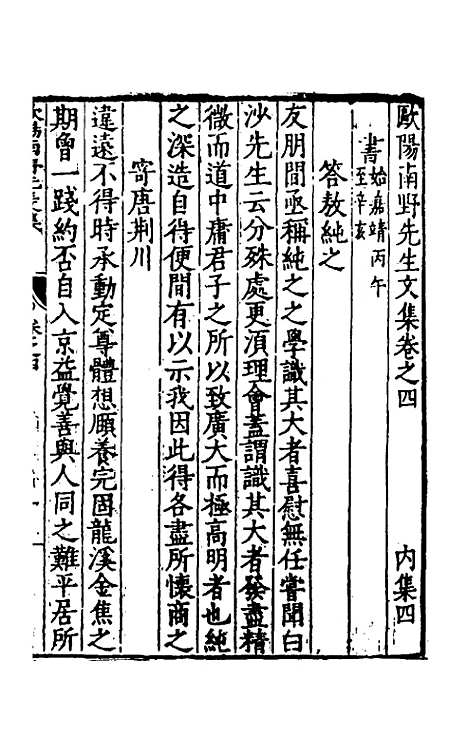 歐陽南野先生文集卷之四　內集四
書始嘉靖丙午
至辛亥
答敖純之
友朋間亟稱純之之學識其大者喜慰無任嘗聞白
沙先生云分殊處更湏理會蓋謂識其大者發盡精
微而道中庸君子之所以致廣大而極高明者也純
之深造自得便間有以示我因此得各盡所懷商之
寄唐荆川
違遠不得時承動定尊體想頤養完固龍溪金焦之
期曾一踐約否自入京益覺善與人同之難平居所